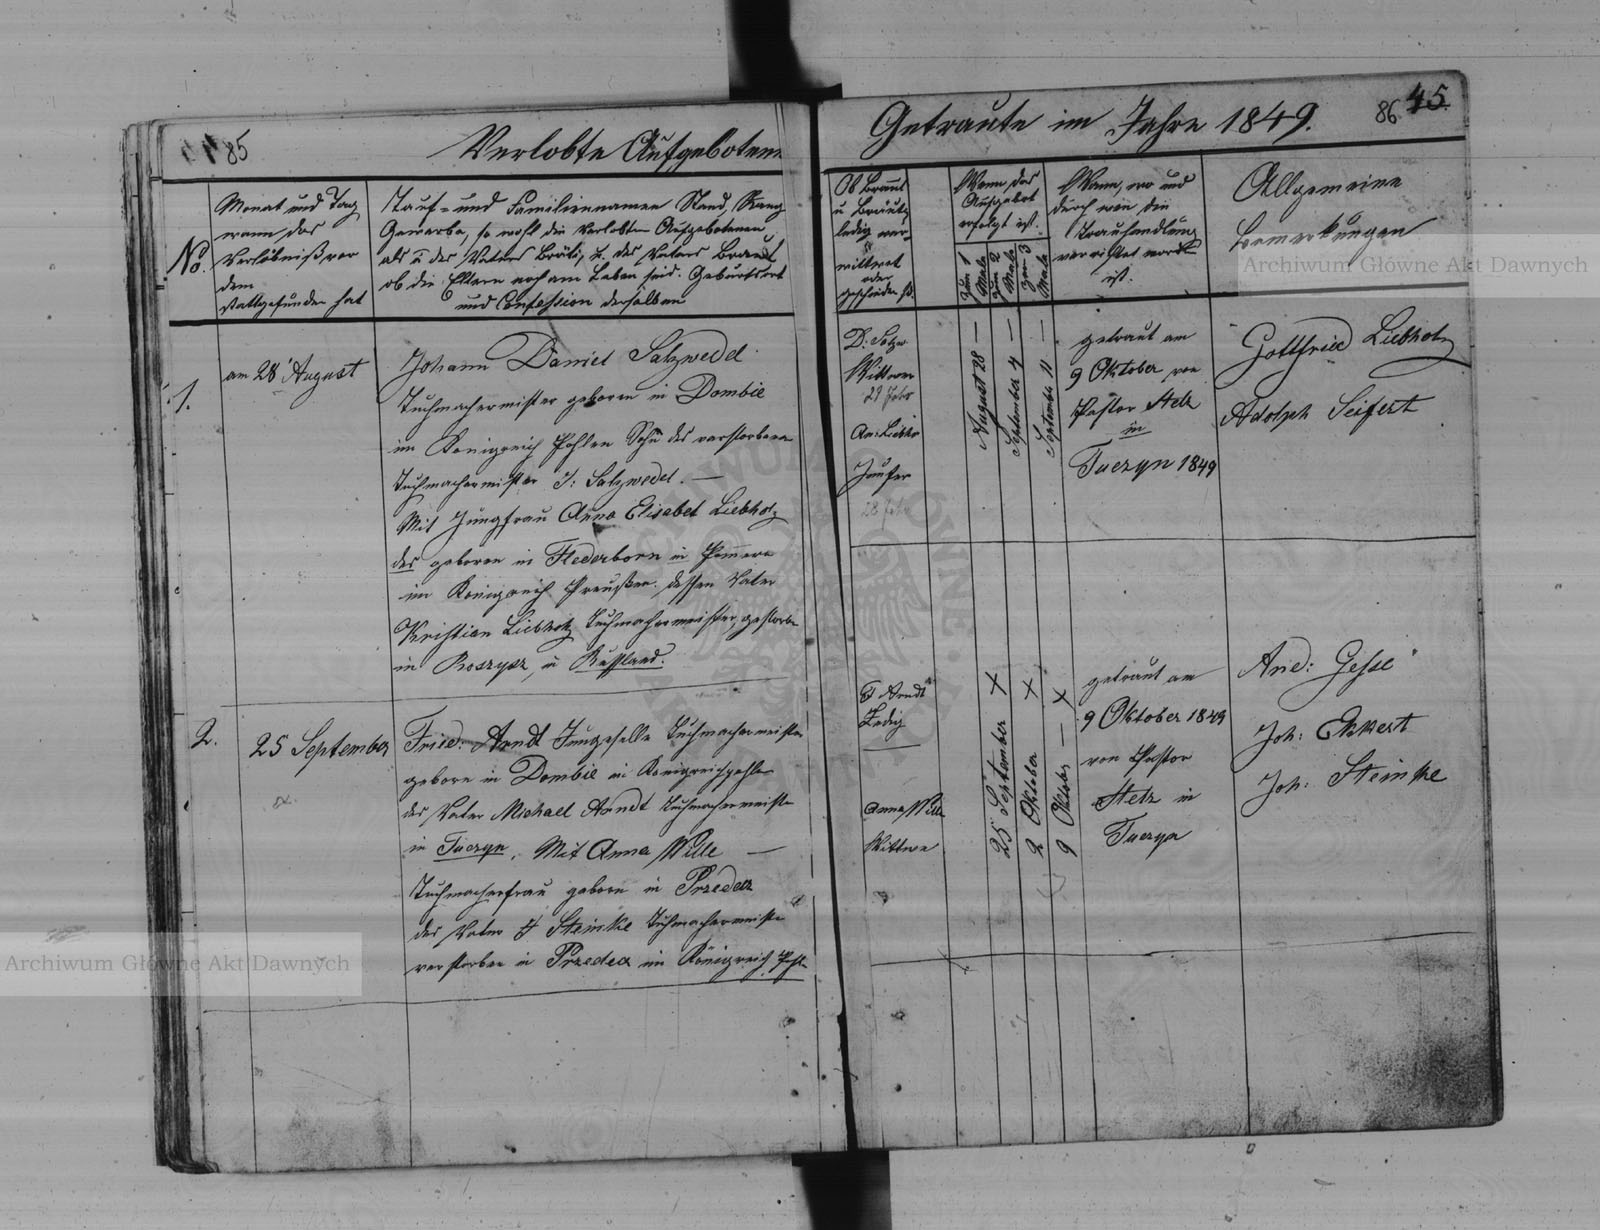 85
Verlobte Aufgebotene
No.
Monat und Tag
wann das
Verlöbniß vor
dem
stattgefunden hat
Tauf- und Familiennamen Stand, Rang
Gewerbe, so wohl die Verlobten Aufgebotenen
als u des Vaters Bräuti, u. des Vaters Braut
ob die Eltern noch am Leben sind. Geburtsort
und Confession derselben
1.
am 28 August
Johann Daniel Salzwedel
Tuchmachermister geboren in Dombie
im Königreich Pohlen Sohn des verstorbene
Tuchmachermister J: Salzwedel. —
Mit Jungfrau Anna Elisabet Liebholz
des geboren in Flederborn in Pomern
im Königreich Preußen. dessen Vater
Kristian Liebholz Tuchmachermeister, gestorbe
in Roszysz, in Russland.
2.
25 September
Fried: Arndt Jungeselle Tuchmachermeister
geboren in Dombie in Königreichpohlen
der Vater Michael Arndt Tuchmachermeiste
in Tuczyn. Mit Anna Wille —
Tuchmacherfrau geboren in Przedecz
der Vater F Steinke Tuchmachermeiste
verstorben in Przedecz im Königreich Pohle
Getraute im Jahre 1849.
86
45
Ob Braut
u Bräutg
ledig ver-
wittwet
oder
geschieden st.
Wenn das
Aufgebot
erfolgt ist.
zum 1 Male
zum 2 Male
zum 3 Male
Wann, wo und
durch wen die
Trauhandlung
verrichtet worden
ist.
Allgemeine
Bemerkungen
D: Salzw
Wittwer
An: Liebho
Jumfer
August 28 —
September 4 —
September 11 —
getraut am
9 Oktober von
Pastor Stelz
in
Tuczyn 1849
Gottfried Liebholz
Adolph Seifert
F Arndt
Ledig
Anna Wille
Wittwe
25 September X
2 Oktober X
9 Oktober — X
getraut am
9 Oktober 1849
von Pastor
Stelz in
Tuczyn
And: Gesse
Joh: Ekkert
Joh: Steinke
Archiwum Główne Akt Dawnych
Archiwum Główne Akt Dawnych